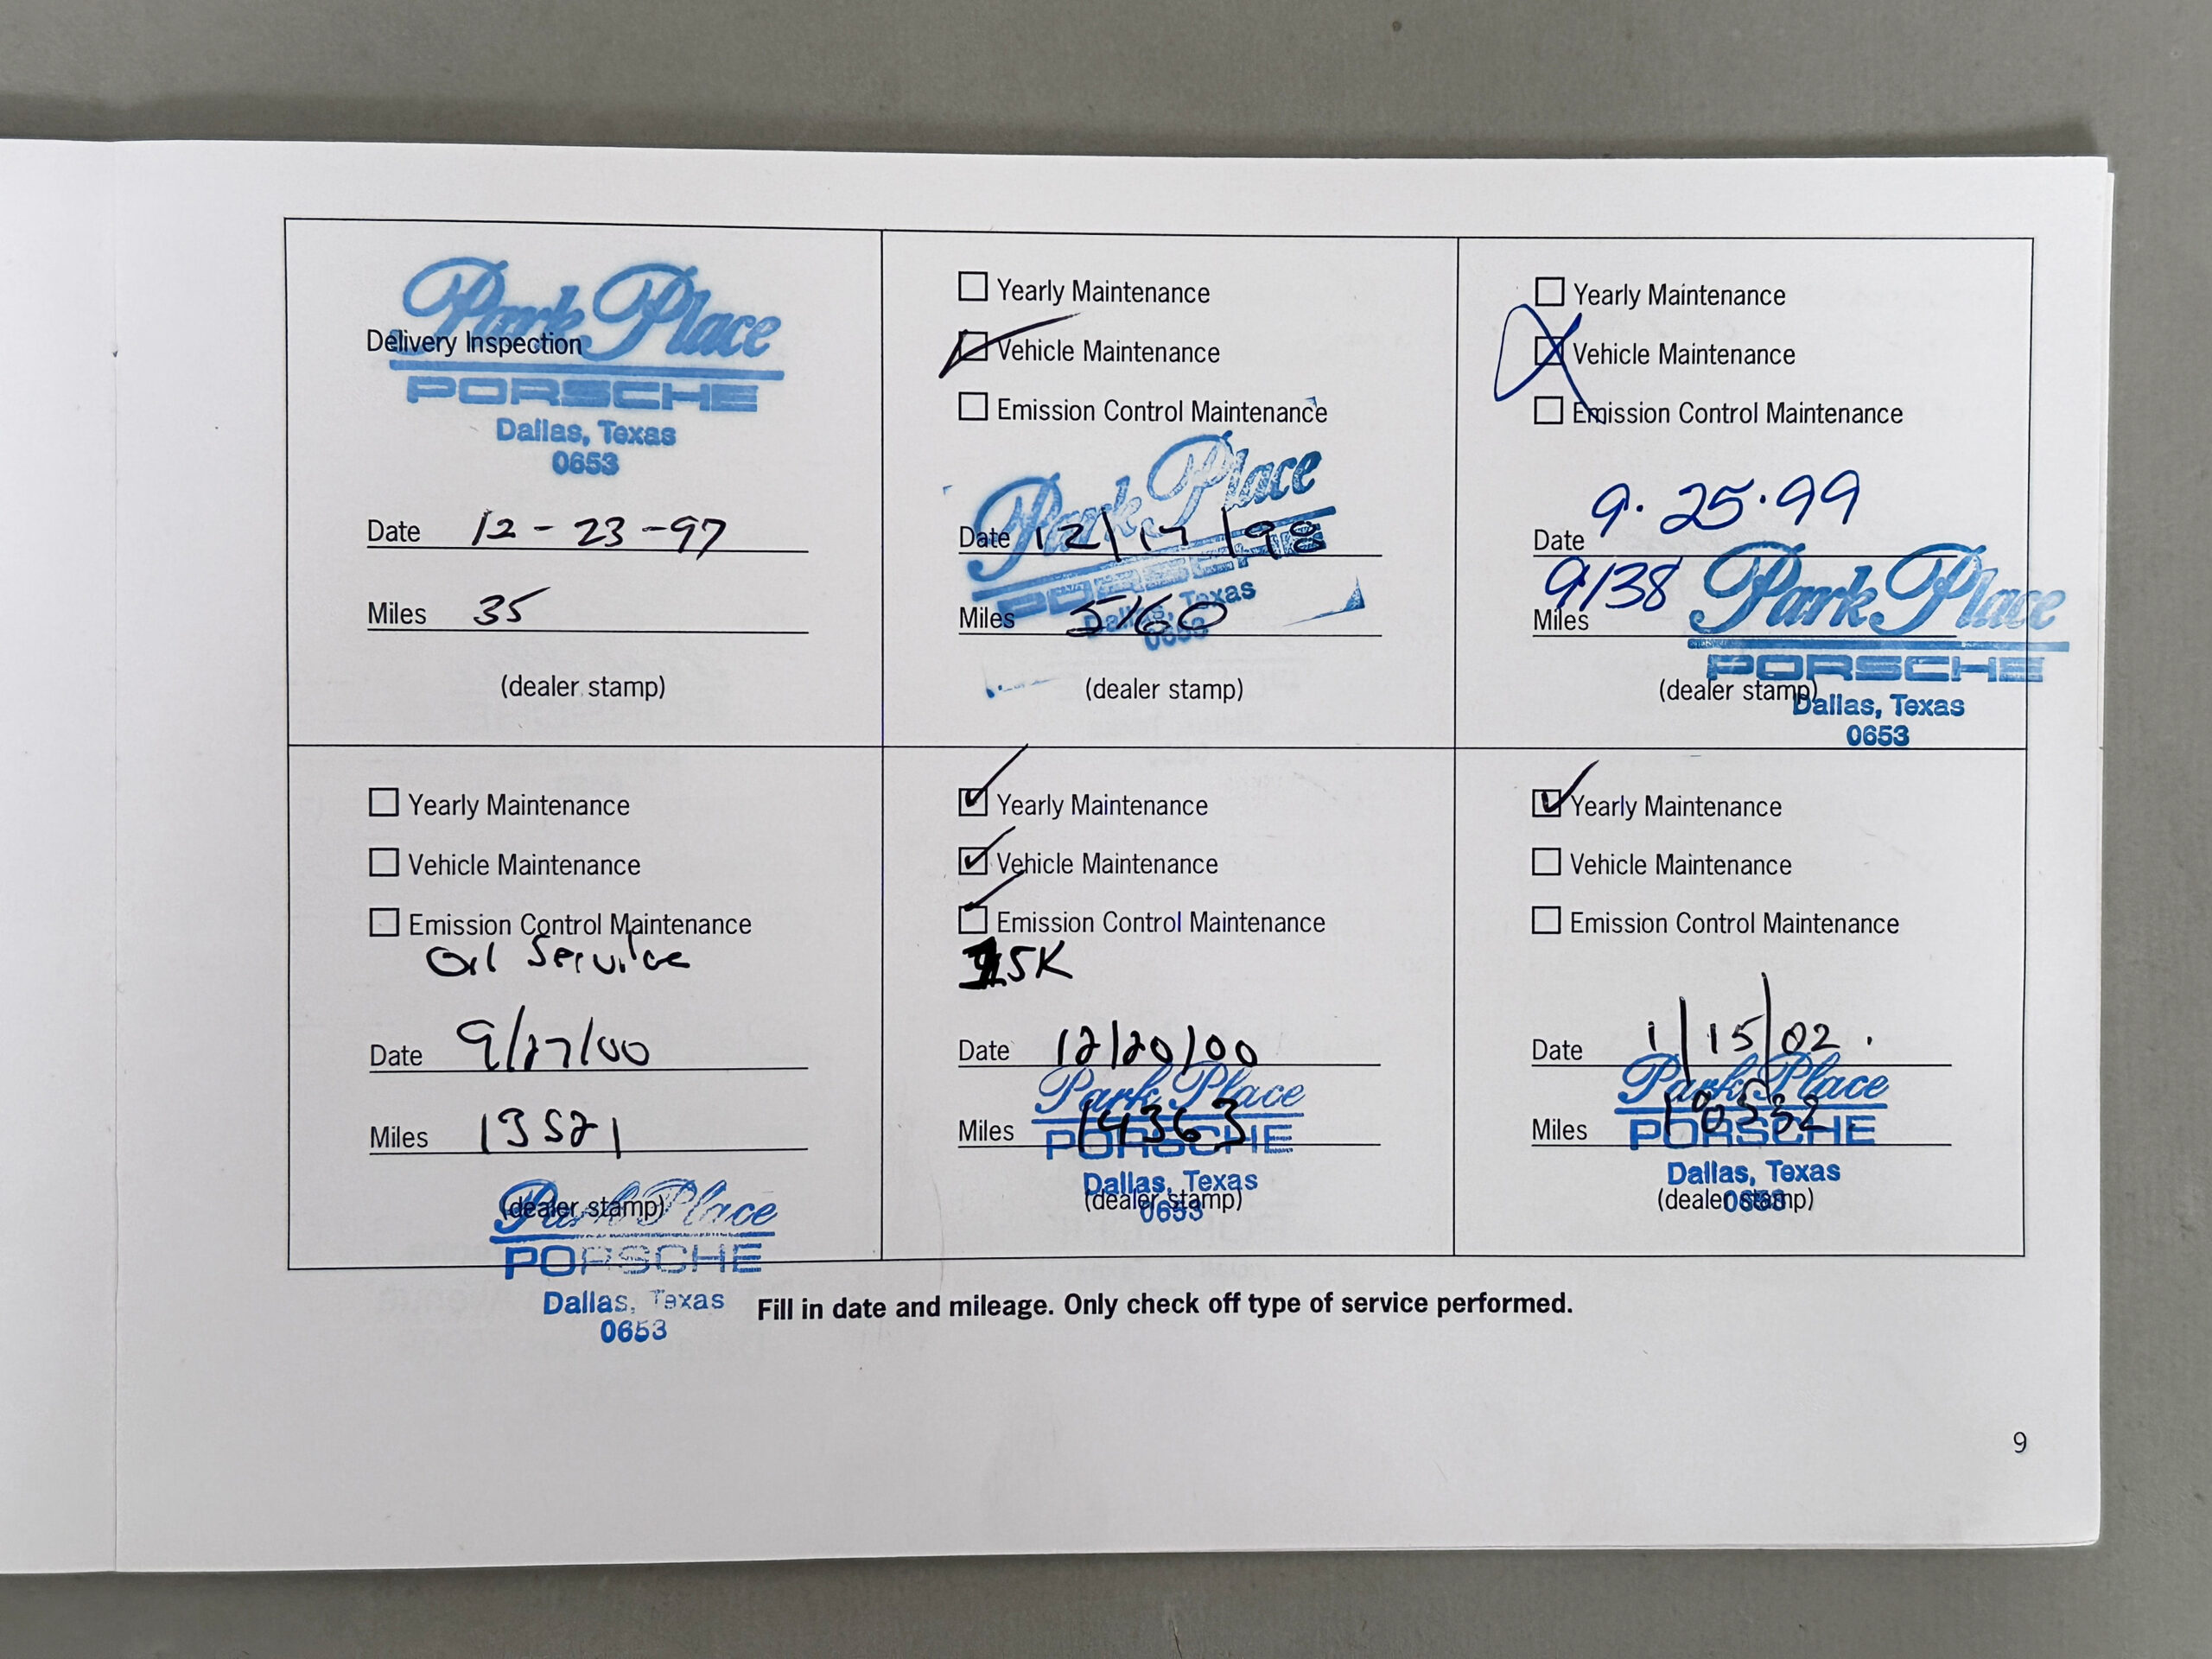 Park Place
Delivery Inspection
PORSCHE
Dallas, Texas
0653
Date 12-23-97
Miles 35
(dealer stamp)
Yearly Maintenance
Vehicle Maintenance
Emission Control Maintenance
Park Place
Date 12/17/98
PORSCHE
Dallas, Texas
Miles 5160
0653
(dealer stamp)
Yearly Maintenance
Vehicle Maintenance
Emission Control Maintenance
Date 9.25.99
Miles 9138
Park Place
PORSCHE
(dealer stamp)
Dallas, Texas
0653
Yearly Maintenance
Vehicle Maintenance
Emission Control Maintenance
Oil Service
Date 9/27/00
Miles 13521
(dealer stamp)
Park Place
PORSCHE
Dallas, Texas
0653
Yearly Maintenance
Vehicle Maintenance
Emission Control Maintenance
15K
Date 12/20/00
Park Place
Miles 14363
PORSCHE
Dallas, Texas
(dealer stamp)
0653
Yearly Maintenance
Vehicle Maintenance
Emission Control Maintenance
Date 1/15/02.
Park Place
Miles
PORSCHE
Dallas, Texas
(dealer stamp)
0653
Fill in date and mileage. Only check off type of service performed.
9